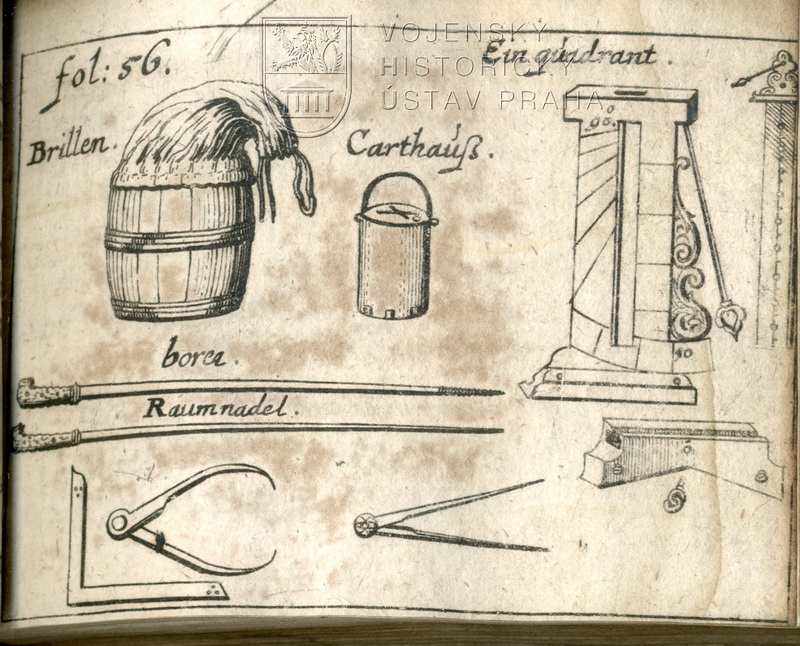 fol: 56.
VOJENSKÝ
HISTORICKÝ
ÚSTAV PRAHA
Ein quadrant.
Brillen.
Carthauß.
90
borer.
Raumnadel.
40